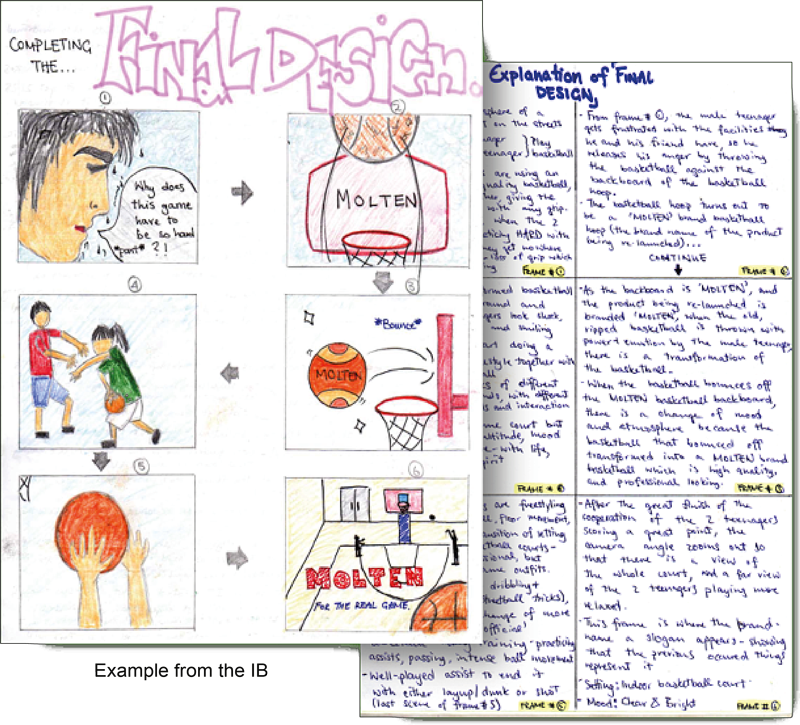 COMPLETING
THE...
FINAL DESIGN.
1
Why does
this game
have to
be so hard
*pant* ?!
2
MOLTEN
3
*Bounce*
MOLTEN
4
5
6
MOLTEN
FOR THE REAL GAME.
Example from the IB
Explanation of 'FINAL
DESIGN,
sphere of a
s on the streets
ager } Play
eenager } basketball
s are using an
quality basketball,
her, giving the
with any grip.
when the 2
HARD with
they get nowhere
- loss of grip which
FRAME # 1
- From frame # 1, the male teenager
gets frustrated with the facilities they
he and his friend have, so he
releases his anger by throwing
the basketball against the
backboard of the basketball
hoop.
- The basketball hoop turns out to
be a 'MOLTEN' brand basketball
hoop (the brand name of the product
being re-launched)...
CONTINUE
FRAME # 2
ormed basketball
round and
gers look shock,
and smiling
art doing a
style together with
all
es of different
with different
s and interaction
me court but
attitude, mood
e - with life,
pirit
FRAME #
- As the backboard is 'MOLTEN', and
the product being re-launched is
branded 'MOLTEN', when the old,
ripped basketball is thrown with
power + emotion by the male teenager,
there is a transformation of
the basketball.
- When the basketball bounces off
the MOLTEN basketball backboard,
there is a change of mood
and atmosphere because the
basketball that bounced off
transformed into a MOLTEN brand
basketball which is high quality,
and professional looking.
FRAME # 3
s are freestyling
floor movement,
nsition of setting
tball courts-
ssional, but
me outfits.
dribbling +
treetball tricks),
ange of more
official'
training - practicing
assists, passing, intense ball movement
- Well-played assist to end it
with either layup/dunk or shot
(last scene of frame # 5)
FRAME # 5
- After the great finish of the
cooperation of the 2 teenagers
scoring a great point, the
camera angle zooms out so
that there is a view of
the whole court, and a far view
of the 2 teenagers playing more
relaxed.
- This frame is where the brand-
name & slogan appears - showing
that the previous occured things
represent it
- Setting: Indoor basketball court
- Mood: Clear & Bright
FRAME # 6